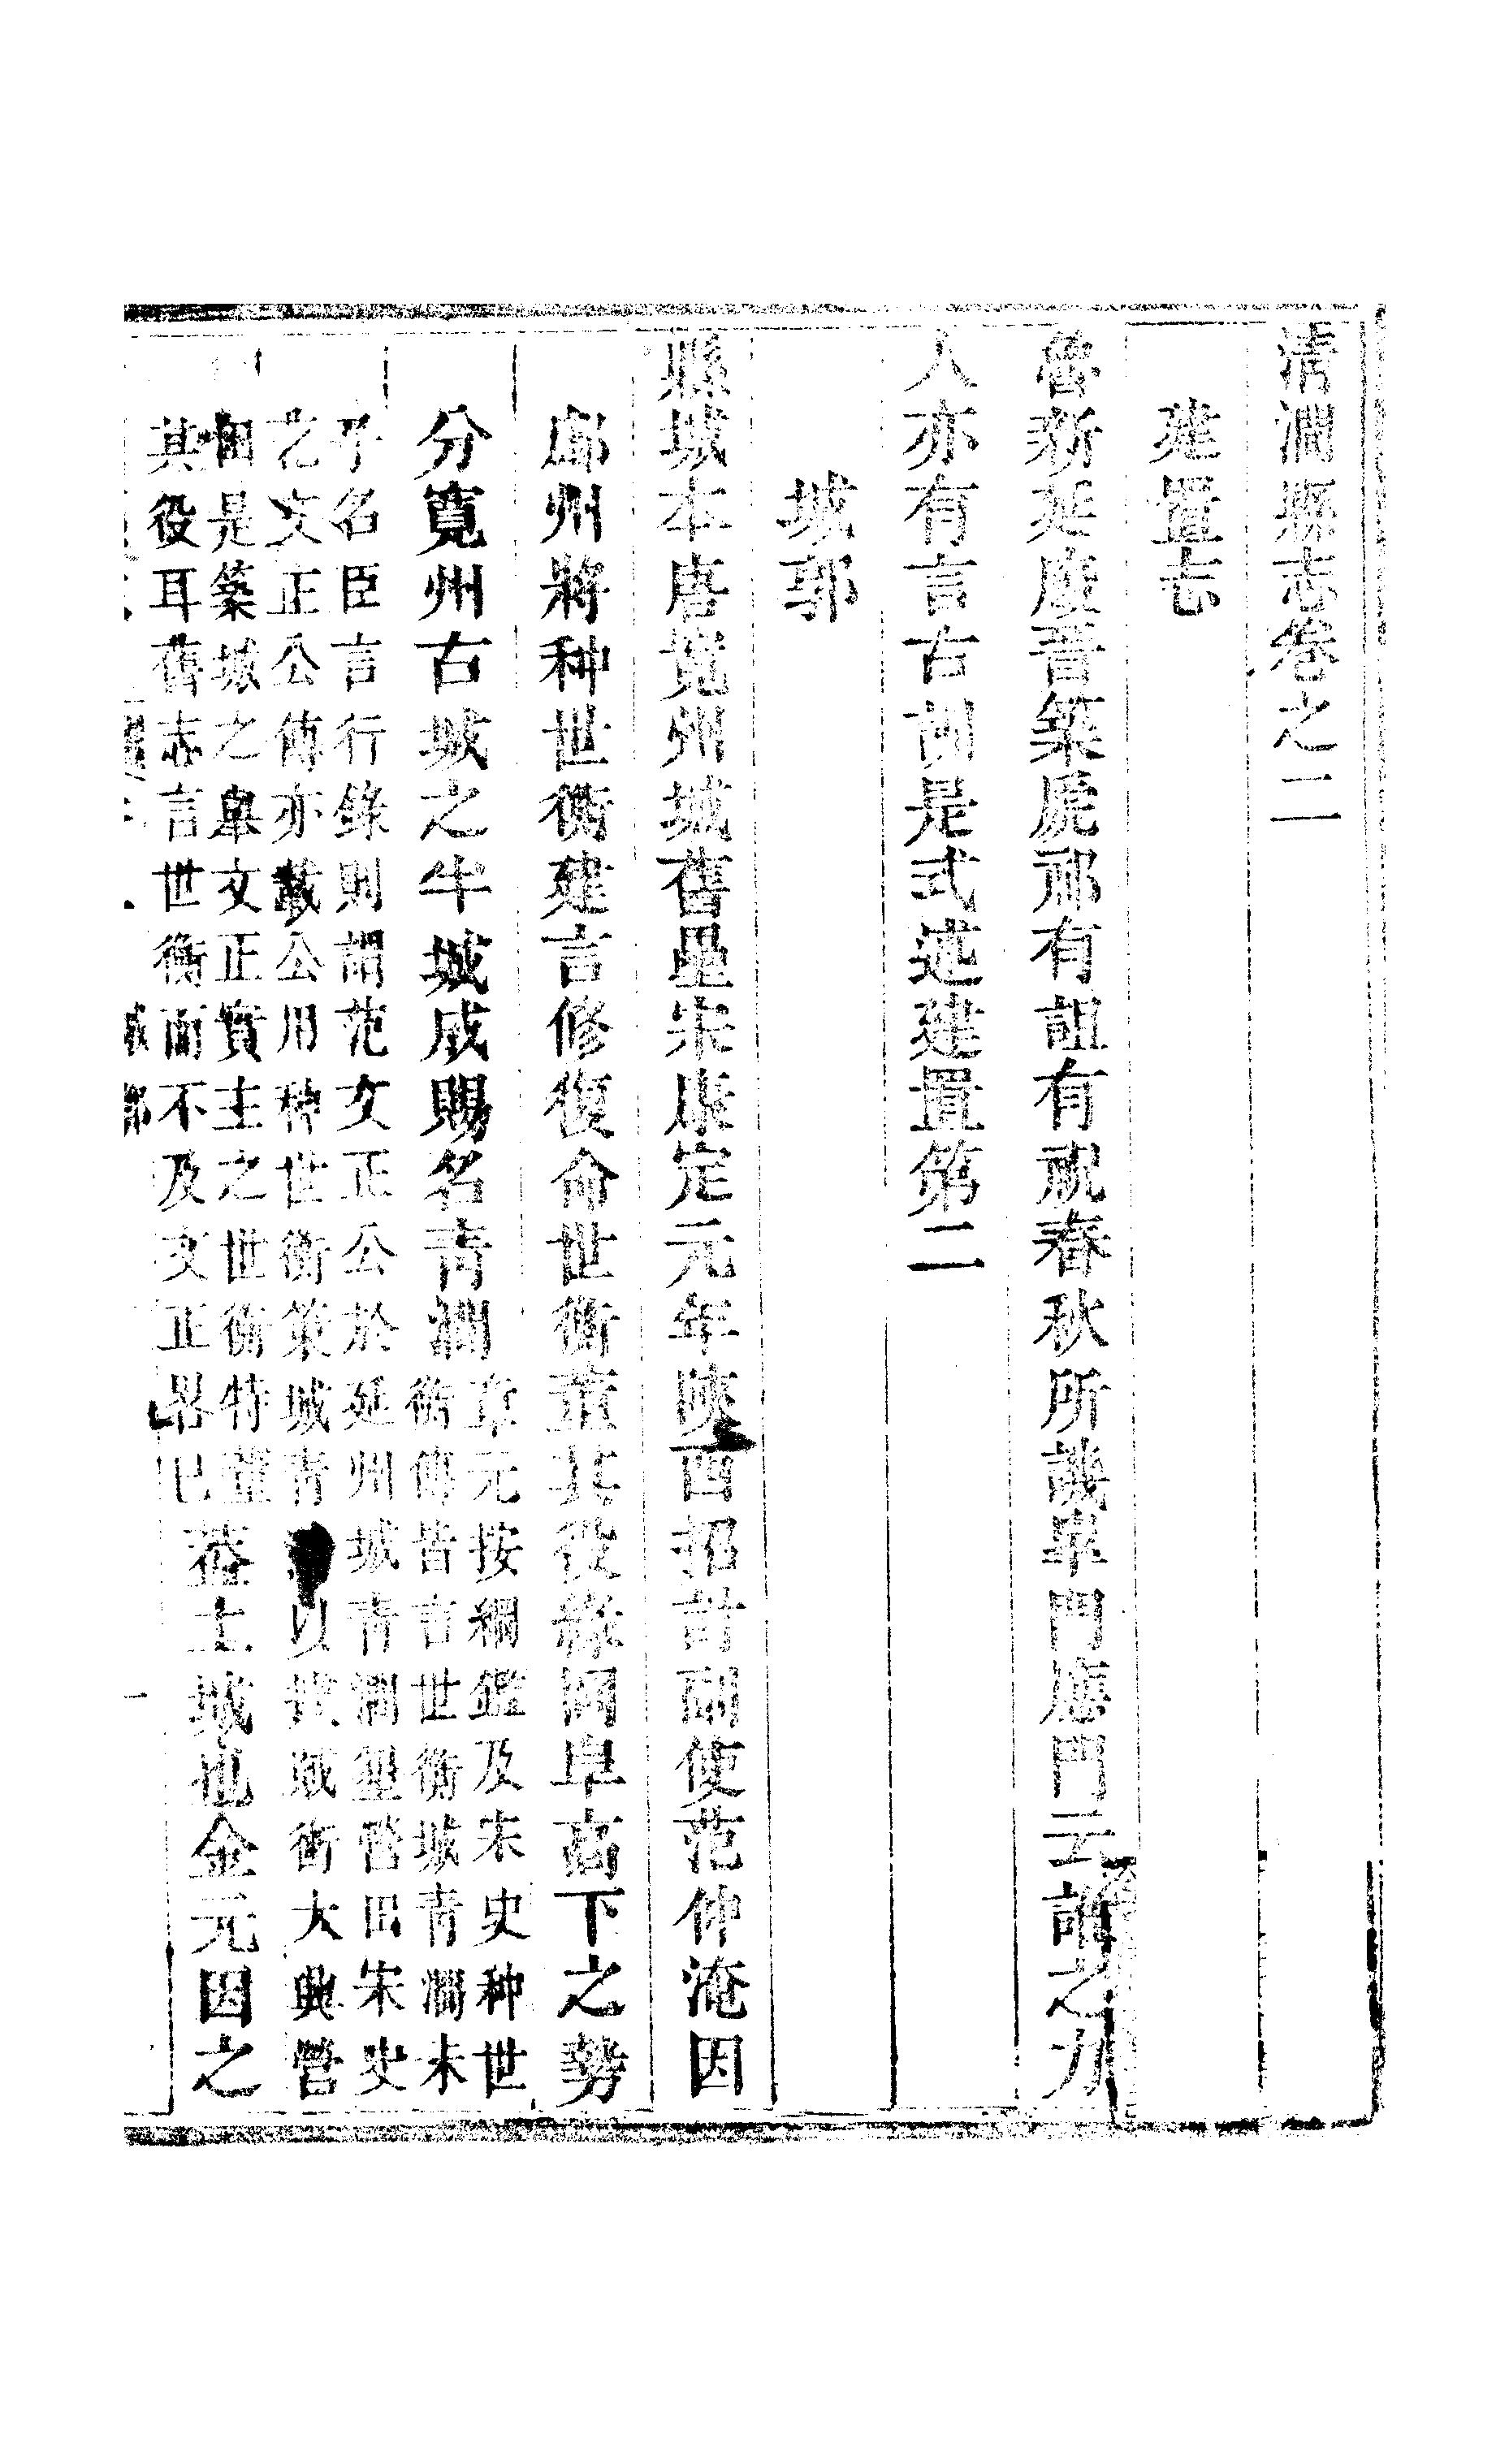 清澗縣志卷之二
建置志
魯新延廄晉築虒祁有詛有祝春秋所譏臯門應門云誰之力
人亦有言古訓是式述建置第二
城郭
縣城本唐寬州城舊壘宋康定元年陝西招討副使范仲淹因
鄜州將种世衡建言修復命世衡董其役緣岡阜高下之勢
分寬州古城之半城成賜名青澗
章元按綱鑑及宋史种世
衡傳皆言世衡城青澗未
子名臣言行錄則謂范文正公於延州城青澗墾營田宋史
范文正公傳亦載公用种世衡策城青 以 賊衝大興營
田是築城之舉文正實主之世衡特董
其役耳舊志言世衡而不及文正畧已
蓋土城也金元因之
城郭
一